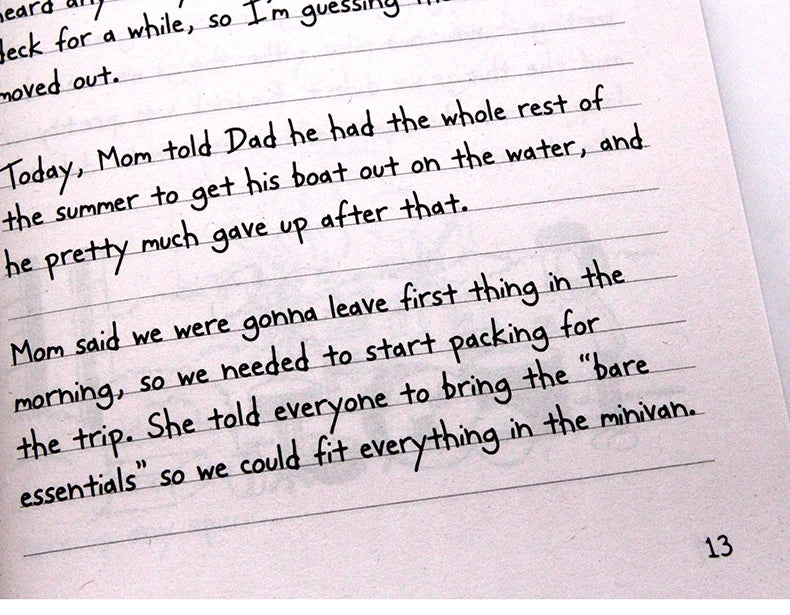 heard any
deck for a while, so I'm guessing
moved out.
Today, Mom told Dad he had the whole rest of
the summer to get his boat out on the water, and
he pretty much gave up after that.
Mom said we were gonna leave first thing in the
morning, so we needed to start packing for
the trip. She told everyone to bring the "bare
essentials" so we could fit everything in the minivan.
13